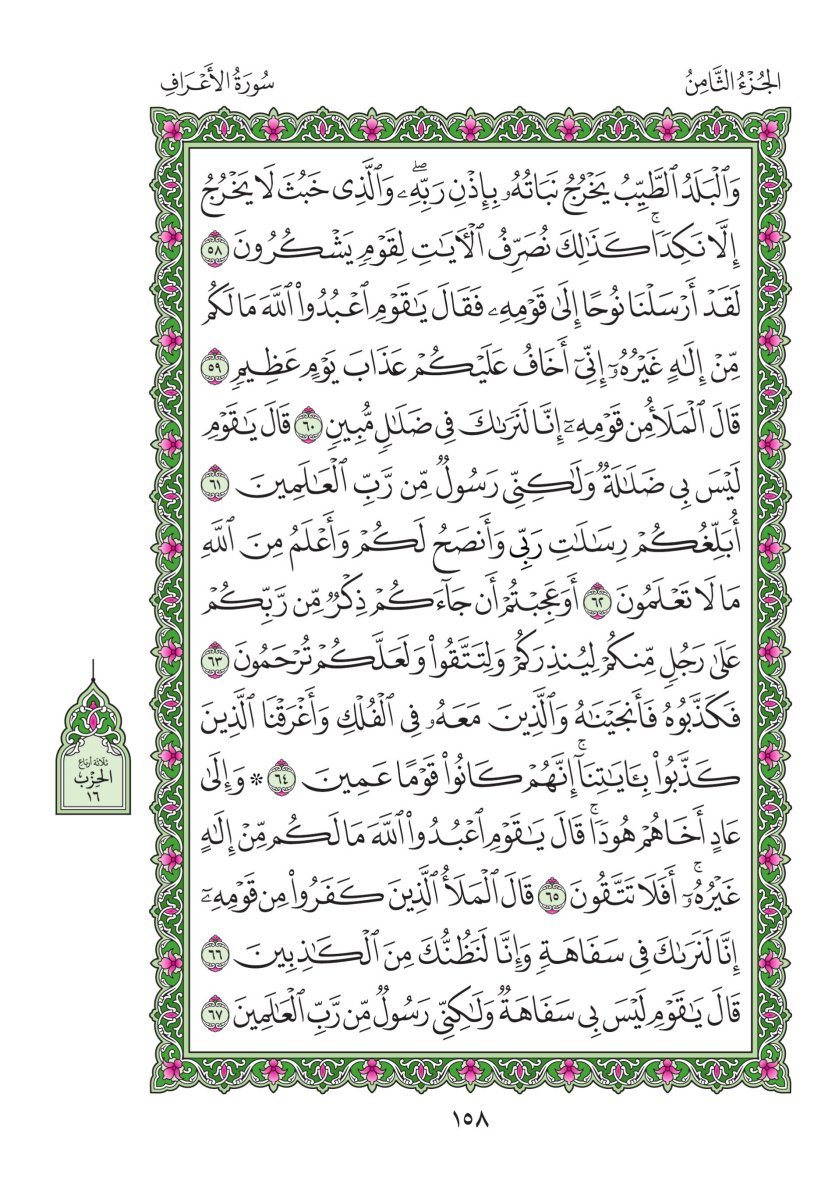 الجُزْءُ الثَّامِنُ
سُورَةُ الأَعْرَافِ
وَٱلْبَلَدُ ٱلطَّيِّبُ يَخْرُجُ نَبَاتُهُۥ بِإِذْنِ رَبِّهِۦۖ وَٱلَّذِى خَبُثَ لَا يَخْرُجُ
إِلَّا نَكِدًاۚ كَذَٰلِكَ نُصَرِّفُ ٱلْأٓيَٰتِ لِقَوْمٍ يَشْكُرُونَ ٥٨
لَقَدْ أَرْسَلْنَا نُوحًا إِلَىٰ قَوْمِهِۦ فَقَالَ يَٰقَوْمِ ٱعْبُدُوا۟ ٱللَّهَ مَا لَكُم
مِّنْ إِلَٰهٍ غَيْرُهُۥٓ إِنِّىٓ أَخَافُ عَلَيْكُمْ عَذَابَ يَوْمٍ عَظِيمٍ ٥٩
قَالَ ٱلْمَلَأُ مِن قَوْمِهِۦٓ إِنَّا لَنَرَىٰكَ فِى ضَلَٰلٍ مُّبِينٍ ٦٠ قَالَ يَٰقَوْمِ
لَيْسَ بِى ضَلَٰلَةٌ وَلَٰكِنِّى رَسُولٌ مِّن رَّبِّ ٱلْعَٰلَمِينَ ٦١
أُبَلِّغُكُمْ رِسَٰلَٰتِ رَبِّى وَأَنصَحُ لَكُمْ وَأَعْلَمُ مِنَ ٱللَّهِ
مَا لَا تَعْلَمُونَ ٦٢ أَوَعَجِبْتُمْ أَن جَآءَكُمْ ذِكْرٌ مِّن رَّبِّكُمْ
عَلَىٰ رَجُلٍ مِّنكُمْ لِيُنذِرَكُمْ وَلِتَتَّقُوا۟ وَلَعَلَّكُمْ تُرْحَمُونَ ٦٣
فَكَذَّبُوهُ فَأَنجَيْنَٰهُ وَٱلَّذِينَ مَعَهُۥ فِى ٱلْفُلْكِ وَأَغْرَقْنَا ٱلَّذِينَ
كَذَّبُوا۟ بِـَٔايَٰتِنَآۚ إِنَّهُمْ كَانُوا۟ قَوْمًا عَمِينَ ٦٤ * وَإِلَىٰ
عَادٍ أَخَاهُمْ هُودًاۚ قَالَ يَٰقَوْمِ ٱعْبُدُوا۟ ٱللَّهَ مَا لَكُم مِّنْ إِلَٰهٍ
غَيْرُهُۥٓۚ أَفَلَا تَتَّقُونَ ٦٥ قَالَ ٱلْمَلَأُ ٱلَّذِينَ كَفَرُوا۟ مِن قَوْمِهِۦٓ
إِنَّا لَنَرَىٰكَ فِى سَفَاهَةٍ وَإِنَّا لَنَظُنُّكَ مِنَ ٱلْكَٰذِبِينَ ٦٦
قَالَ يَٰقَوْمِ لَيْسَ بِى سَفَاهَةٌ وَلَٰكِنِّى رَسُولٌ مِّن رَّبِّ ٱلْعَٰلَمِينَ ٦٧
ثلاثة أرباع
الحِزْب
١٦
١٥٨